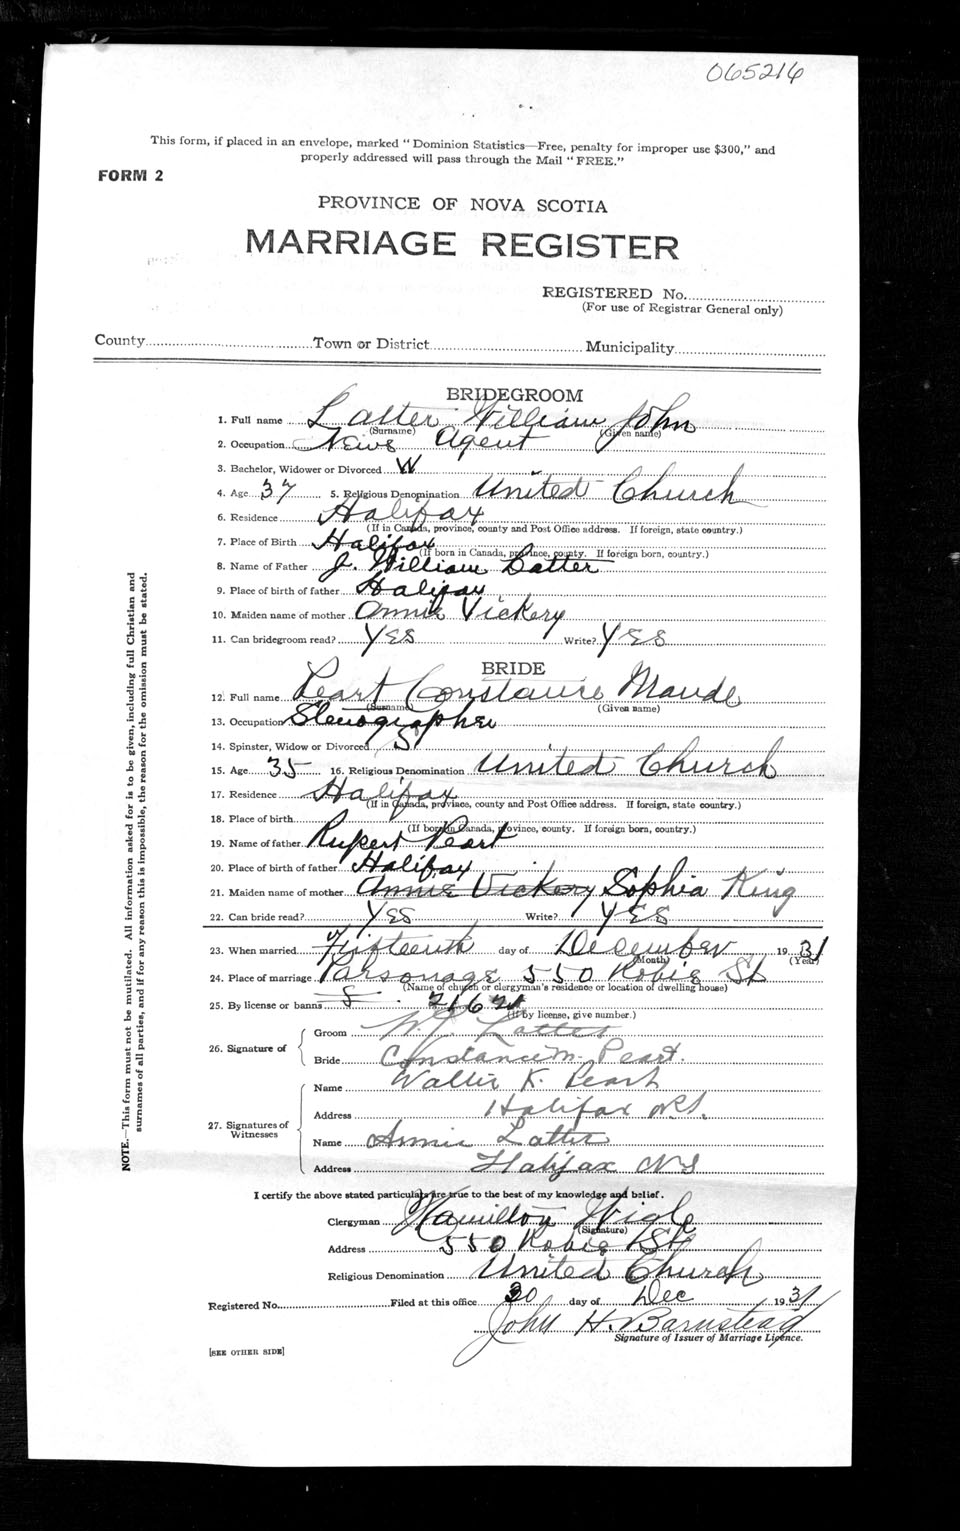 065216
This form, if placed in an envelope, marked " Dominion Statistics—Free, penalty for improper use $300," and
properly addressed will pass through the Mail " FREE."
FORM 2
PROVINCE OF NOVA SCOTIA
MARRIAGE REGISTER
REGISTERED No.
(For use of Registrar General only)
County Town or District Municipality
BRIDEGROOM
1. Full name Latter William John
(Surname) (Given name)
2. Occupation News Agent
3. Bachelor, Widower or Divorced W
4. Age 37 5. Religious Denomination United Church
6. Residence Halifax
(If in Canada, province, county and Post Office address. If foreign, state country.)
7. Place of Birth Halifax
(If born in Canada, province, county. If foreign born, country.)
8. Name of Father J. William Latter
9. Place of birth of father Halifax
10. Maiden name of mother Annie Vickery
11. Can bridegroom read? YES Write? YES
BRIDE
12. Full name Peart Constance Maude
(Surname) (Given name)
13. Occupation Stenographer
14. Spinster, Widow or Divorced S
15. Age 35 16. Religious Denomination United Church
17. Residence Halifax
(If in Canada, province, county and Post Office address. If foreign, state country.)
18. Place of birth
(If born in Canada, province, county. If foreign born, country.)
19. Name of father Rupert Peart
20. Place of birth of father Halifax
21. Maiden name of mother Annie Vickery Sophia King
22. Can bride read? YES Write? YES
23. When married Fifteenth day of December 1931
(Month) (Year)
24. Place of marriage Parsonage 550 Robie St
(Name of church or clergyman's residence or location of dwelling house)
25. By license or banns
(If by license, give number.)
26. Signature of
Groom W J Latter
Bride Constance M. Peart
27. Signatures of
Witnesses
Name Walter K. Peart
Address Halifax N.S.
Name Annie Latter
Address Halifax NS
I certify the above stated particulars are true to the best of my knowledge and belief.
Clergyman Hamilton Wigle
(Signature)
Address 550 Robie St
Religious Denomination United Church
Registered No. Filed at this office 30 day of Dec 1931
John H. Barnstead
Signature of Issuer of Marriage Licence.
[SEE OTHER SIDE]
NOTE.—This form must not be mutilated. All information asked for is to be given, including full Christian and
surnames of all parties, and if for any reason this is impossible, the reason for the omission must be stated.